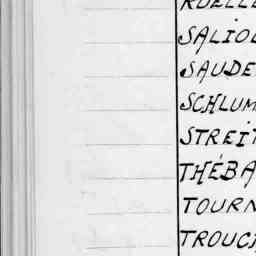 RUELLE
SALIOU
SAUDE
SCHLUM
STREIT
THÉBA
TOURN
TROUCH